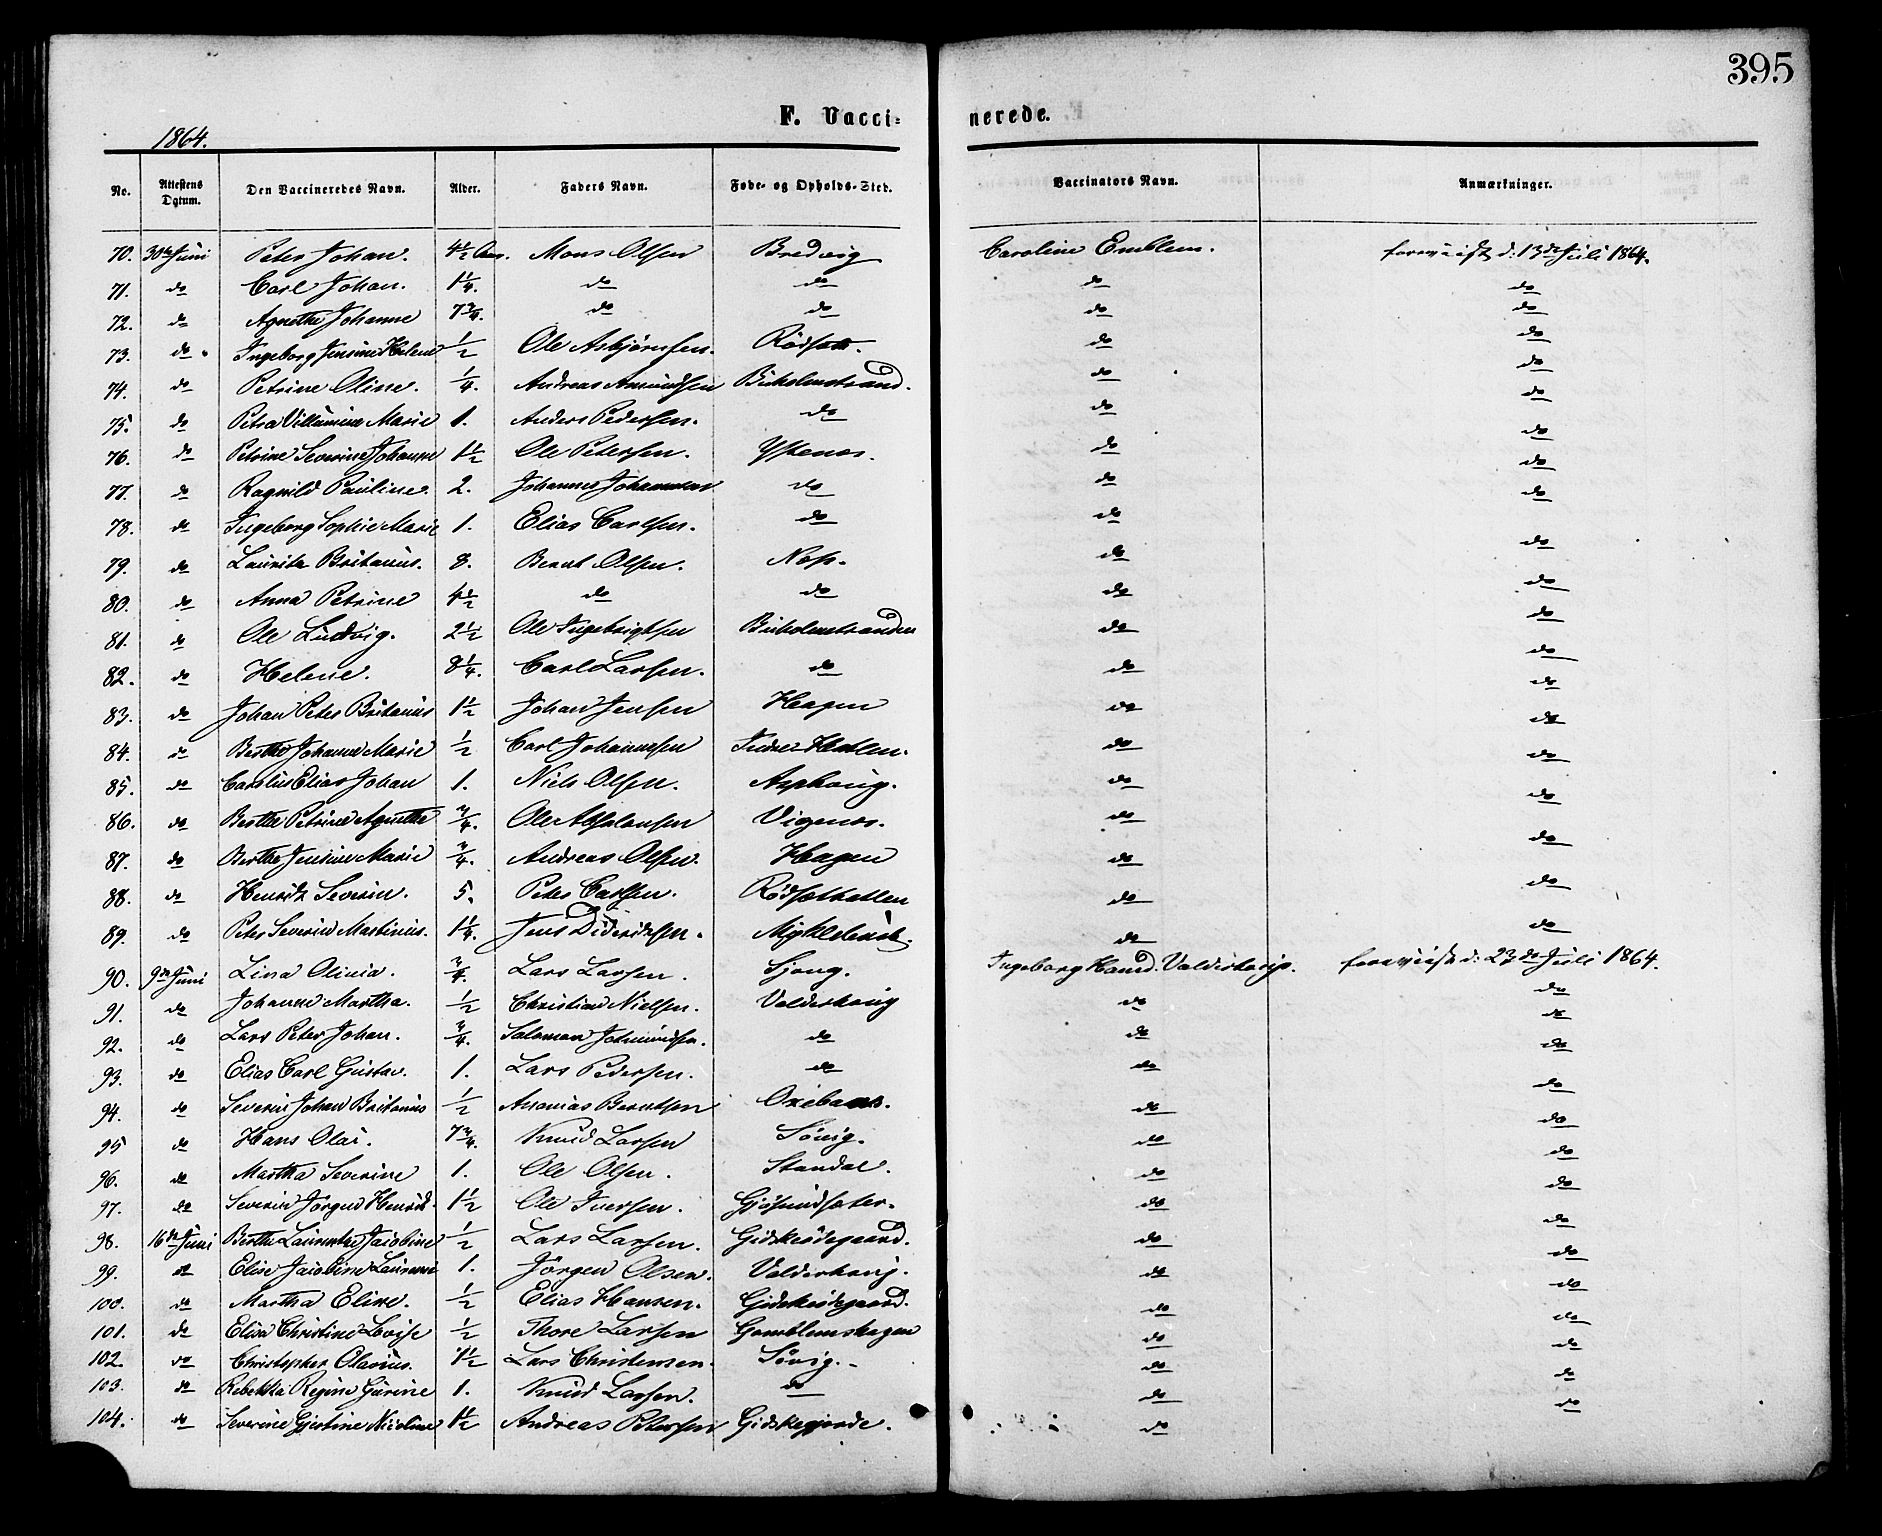 395
F. Vaccinerede.
1864.
No. Attestens Datum. Den Vaccineredes Navn. Alder. Faders Navn. Føde- og Opholds-Sted. Vaccinators Navn. Anmærkninger.
70. 30te Juni Peter Johan. 4½ Aar. Mons Olsen Bredvig Caroline Emblem. foreviist d: 13de Juli 1864.
71. do Carl Johan. 1¼. do do do do
72. do Agnethe Johanne 7¾. do do do do
73. do Ingeborg Jensine Helene ½ Ole Asbjørnsen. Rødsæt. do do
74. do Petrine Oline. ¼. Andreas Amundsen do do
75. do Petra Villumine Marie 1. Anders Pedersen. do do do
76. do Petrine Severine Johanne 1½ Ole Petersen. Ystenæs. do do
77. do Ragnild Pauline. 2. Johannes Johannesen do do do
78. do Ingeborg Sophie Marie 1. Elias Carlsen. do do do
79. do Lauritz Britanus. 8. Bernt Olsen. Næss. do do
80. do Anna Petrine 4½ do do do do
81. do Ole Ludvig. 2½ Ole Ingebrigtsen do do
82. do Helene. 8¼. Carl Larsen. do do do
83. do Johan Peter Britanius 1½ Johan Jensen Hagen do do
84. do Berthe Johanne Marie ½ Carl Johannesen Indre do do
85. do Carolus Elias Johan 1. Niels Olsen. Asphoug. do do
86. do Berthe Petrine Agnethe ¾. Ole Absalonsen Vigenæs. do do
87. do Berthe Jensine Marie ¾. Andreas Olsen. Hagen do do
88. do Henrik Severin. 5. Peter Carlsen. Rødsæthatlen do do
89. do Peter Severin Martinius. 1¼. Jens Dideriksen. Myklebust. do do
90. 9de Juni Lina Olivia. ¾. Lars Larsen. Sjong. Ingeborg Hansd. Valderhaug. foreviist d: 23de Juli 1864.
91. do Johanne Martha. ½ Christian Nielsen. Valderhoug do do
92. do Lars Peter Johan. ¾. Salomon do do do
93. do Elias Carl Gustav. 1. Lars Pedersen. do do do
94. do Severin Johan Britanius ½ Ananias Berntsen Oxebaas. do do
95 do Hans Olai. 7¾. Knud Larsen Søvig. do do
96. do Martha Severine 1. Ole Olsen. Standal. do do
97. do Severin Jørgen Henrik. 1½ Ole Iversen. Gjøsundsæter. do do
98. 16de Juni Berthe Laurentze Jacobine ½ Lars Larsen. Gidskeødegaard. do do
99. do Elise Jacobine 1. Jørgen Olsen. Valderhoug. do do
100. do Martha Eline. ½ Elias Hansen. Gidskeødegaard. do do
101. do Elisa Christine Lovise ½ Thore Larsen Gamblemshagen do do
102. do Christopher Olavius. 1½ Lars Christensen. Søvig. do do
103. do Rebekka Regine Gurine 1. Knud Larsen. do do do
104. do Severine Gjertine Nicoline 1½ Andreas Petersen Gidskegjerde. do do